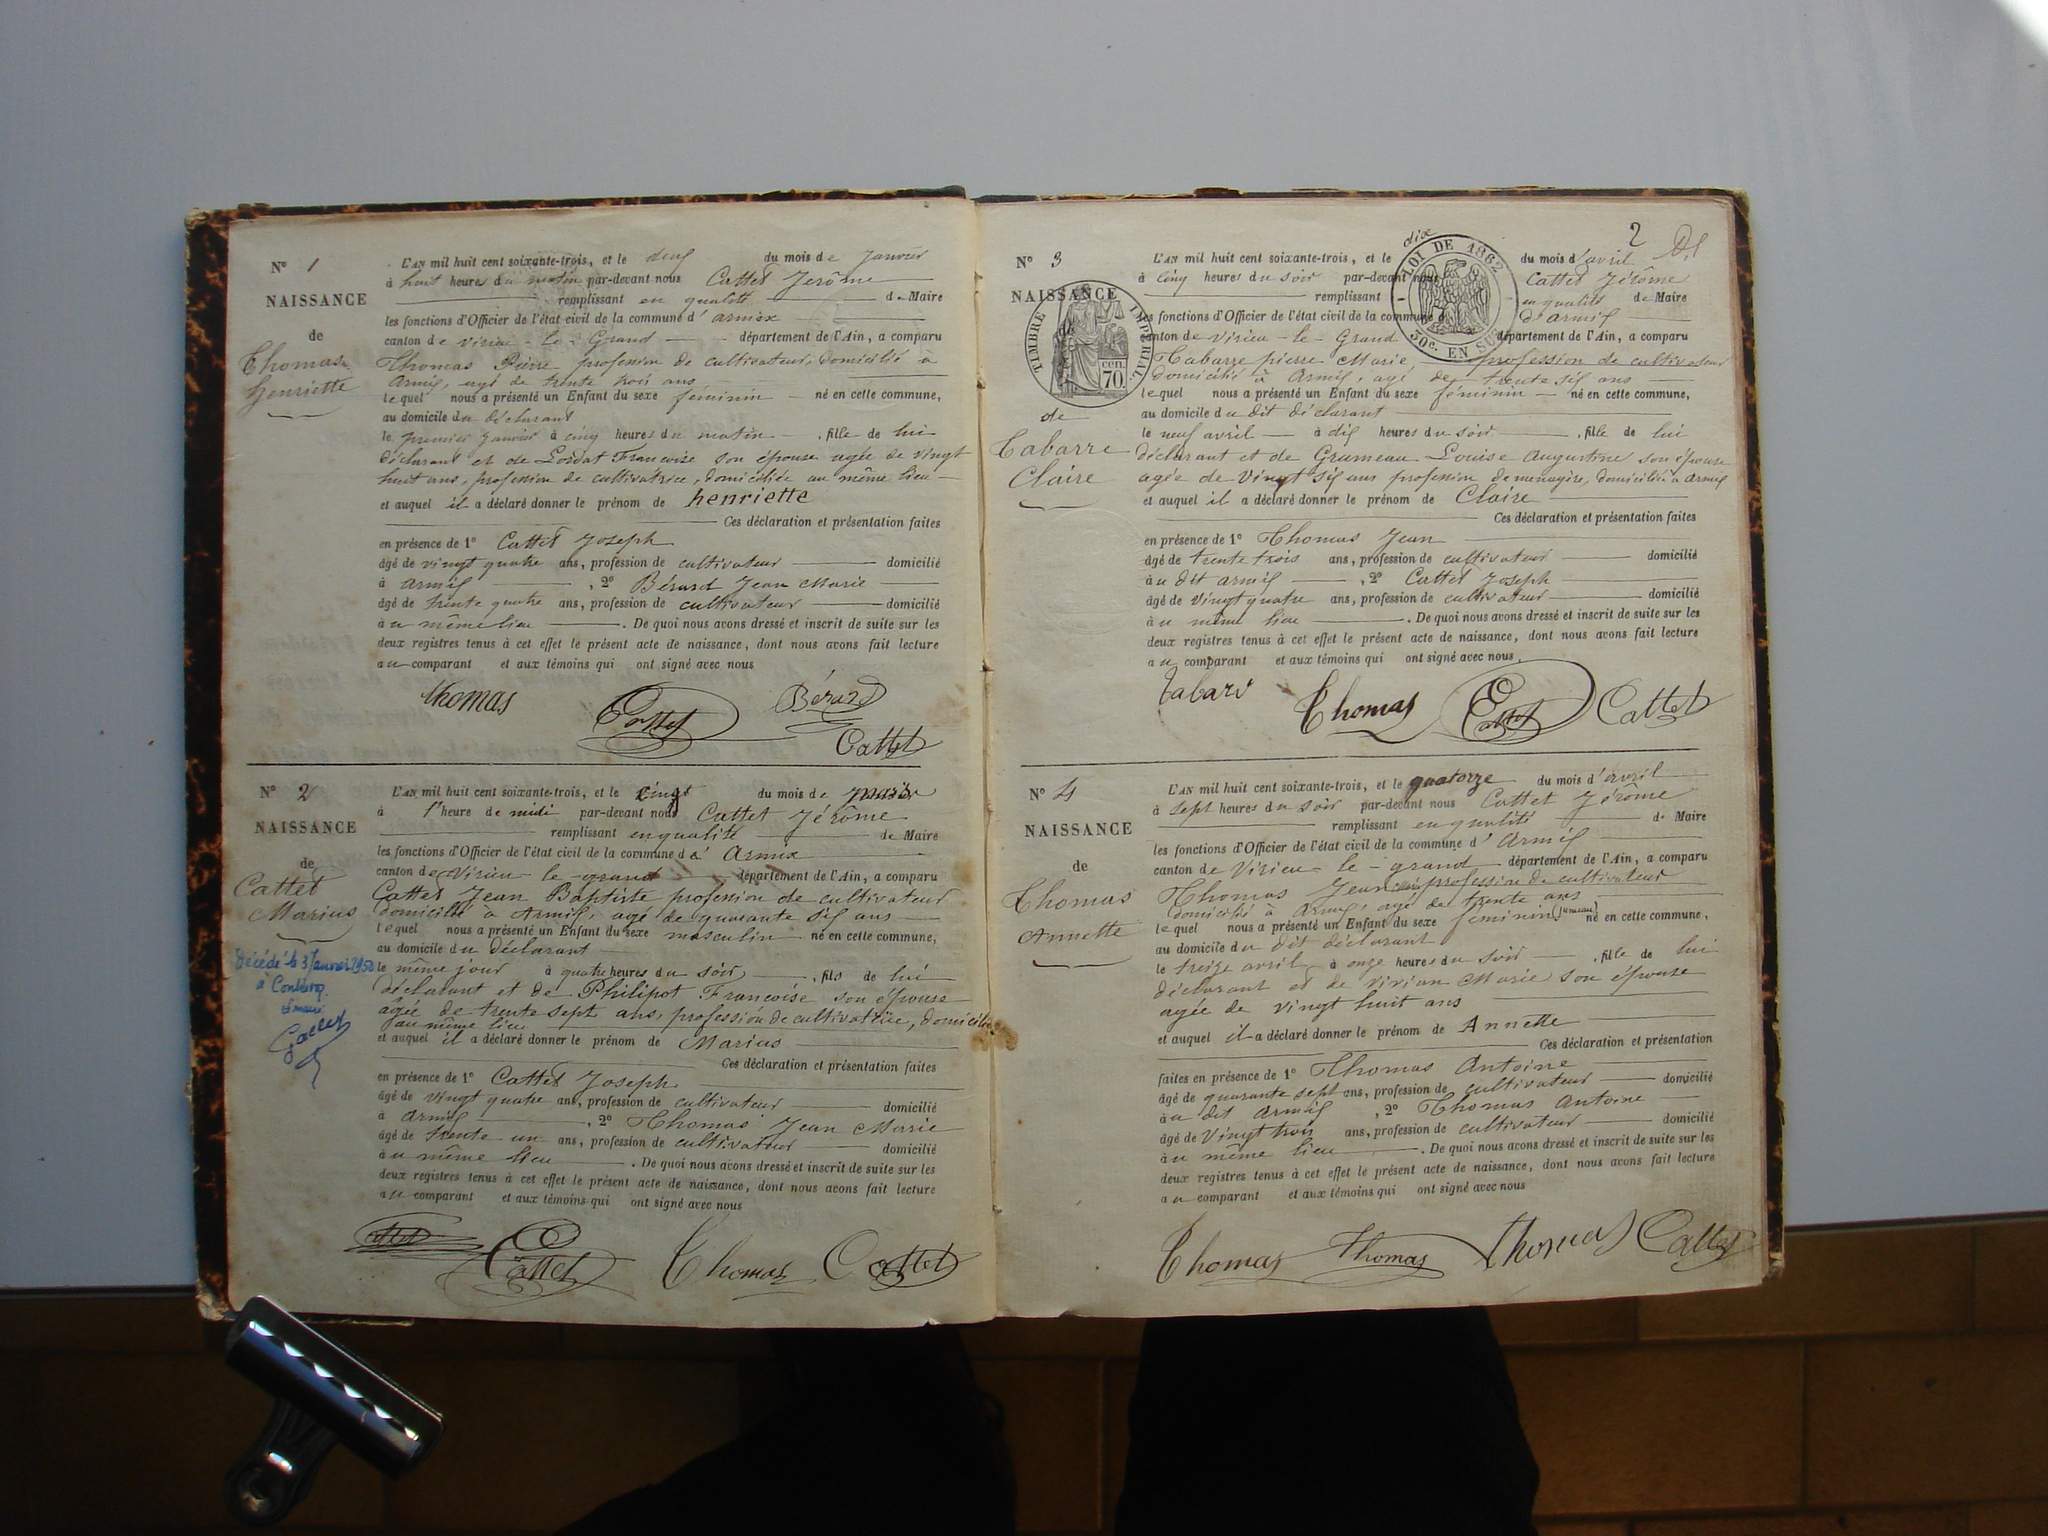 N° 1
NAISSANCE
de
Thomas
henriette
L'AN mil huit cent soixante-trois, et le deux du mois de Janvier
à huit heures du matin par-devant nous Cattet Jerôme
remplissant en qualité de Maire
les fonctions d'Officier de l'état civil de la commune d'armix
canton de virieu-le-Grand département de l'Ain, a comparu
Thomas Pierre profession de cultivateur, domicilié à
Armix, agé de trente trois ans
lequel nous a présenté un Enfant du sexe féminin né en cette commune,
au domicile du déclarant
le premier janvier à cinq heures du matin , fille de lui
déclarant et de Lordat Francoise son épouse agée de vingt
huit ans, profession de cultivatrice, domiciliée au même lieu
et auquel il a déclaré donner le prénom de henriette
Ces déclaration et présentation faites
en présence de 1° Cattet Joseph
âgé de vingt quatre ans, profession de cultivateur domicilié
à armix , 2° Bérard Jean Marie
âgé de trente quatre ans, profession de cultivateur domicilié
au même lieu . De quoi nous avons dressé et inscrit de suite sur les
deux registres tenus à cet effet le présent acte de naissance, dont nous avons fait lecture
au comparant et aux témoins qui ont signé avec nous
thomas Cattet Bérard
Cattet
N° 2
NAISSANCE
de
Cattet
Marius
Décédé le 3 Janvier 1950
à
Le maire
L'AN mil huit cent soixante-trois, et le vingt du mois de
à 1' heure de midi par-devant nous Cattet Jérôme
remplissant en qualité de Maire
les fonctions d'Officier de l'état civil de la commune d'Armix
canton de Virieu le grand département de l'Ain, a comparu
Cattet Jean Baptiste profession de cultivateur
domicilié à Armix, agé de quarante six ans
lequel nous a présenté un Enfant du sexe masculin né en cette commune,
au domicile du déclarant
le même jour à quatre heures du soir , fils de lui
déclarant et de Philipot Francoise son épouse
agée de trente sept ans, profession de cultivatrice, domiciliée
au même lieu
et auquel il a déclaré donner le prénom de Marius
Ces déclaration et présentation faites
en présence de 1° Cattet Joseph
âgé de vingt quatre ans, profession de cultivateur domicilié
à armix , 2° Thomas Jean Marie
âgé de trente un ans, profession de cultivateur domicilié
au même lieu . De quoi nous avons dressé et inscrit de suite sur les
deux registres tenus à cet effet le présent acte de naissance, dont nous avons fait lecture
au comparant et aux témoins qui ont signé avec nous
Cattet Cattet Thomas Cattet
2
N° 3
NAISSANCE
de
Tabarre
Claire
TIMBRE IMPERIAL
70 cen.
LOI DE 1862
30c. EN SUS
L'AN mil huit cent soixante-trois, et le dix du mois d'avril
à cinq heures du soir par-devant nous Cattet Jérôme
remplissant en qualité de Maire
les fonctions d'Officier de l'état civil de la commune d'Armix
canton de virieu-le-Grand département de l'Ain, a comparu
Tabarre pierre Marie profession de cultivateur
domicilié à Armix, agé de trente six ans
lequel nous a présenté un Enfant du sexe féminin né en cette commune,
au domicile du dit déclarant
le neuf avril à dix heures du soir , fille de lui
déclarant et de Grumeau Louise Augustine son épouse
agée de vingt six ans profession de menagère, domiciliée à Armix
et auquel il a déclaré donner le prénom de Claire
Ces déclaration et présentation faites
en présence de 1° Thomas Jean
âgé de trente trois ans, profession de cultivateur domicilié
au dit armix , 2° Cattet Joseph
âgé de vingt quatre ans, profession de cultivateur domicilié
au même lieu . De quoi nous avons dressé et inscrit de suite sur les
deux registres tenus à cet effet le présent acte de naissance, dont nous avons fait lecture
au comparant et aux témoins qui ont signé avec nous.
Tabare Thomas Cattet Cattet
N° 4
NAISSANCE
de
Thomas
Annette
L'AN mil huit cent soixante-trois, et le quatorze du mois d'avril
à sept heures du soir par-devant nous Cattet Jérôme
remplissant en qualité de Maire
les fonctions d'Officier de l'état civil de la commune d'Armix
canton de Virieu-le-grand département de l'Ain, a comparu
Thomas Jean profession de cultivateur
domicilié à Armix, agé de trente ans
lequel nous a présenté un Enfant du sexe féminin (jumeau) né en cette commune,
au domicile du dit déclarant
le treize avril à onze heures du soir , fille de lui
déclarant et de vivian Marie son épouse
agée de vingt huit ans
et auquel il a déclaré donner le prénom de Annette
Ces déclaration et présentation
faites en présence de 1° Thomas Antoine
âgé de quarante sept ans, profession de cultivateur domicilié
au dit Armix , 2° Thomas Antoine
âgé de Vingt trois ans, profession de cultivateur domicilié
au même lieu . De quoi nous avons dressé et inscrit de suite sur les
deux registres tenus à cet effet le présent acte de naissance, dont nous avons fait lecture
au comparant et aux témoins qui ont signé avec nous
Thomas Thomas Thomas Cattet